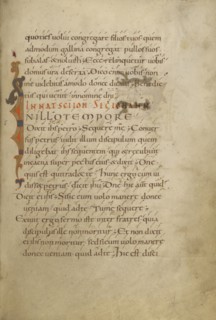 quoties volui congregare filios tuos quem
admodum gallina congregat pullos suos
sub alas & noluisti Ecce relinquetur vobis
domus vra deserta Dico enim vobis non
me videbitis amodo donec dicatis
qui in nomine dni
IN NAT SCI IOH
IN ILLO TEMPORE
Dixit ihs petro Sequere me Conver
sus petrus vidit illum discipulum quem
diligebat ihs sequentem qui & recubuit
in caena super pectus eius & dixit Dne
quis est qui tradet te Hunc ergo cum vi
disset petrus dicit ihu Dne hic aut quid
Dicit ei ihs Sic eum volo manere donec
veniam quid ad te Tu me sequere
Exivit ergo sermo iste inter fratres quia
discipulus ille non moritur Et non dixit
ei ihs non moritur sed sic eum volo manere
donec veniam quid ad te Hic est disci